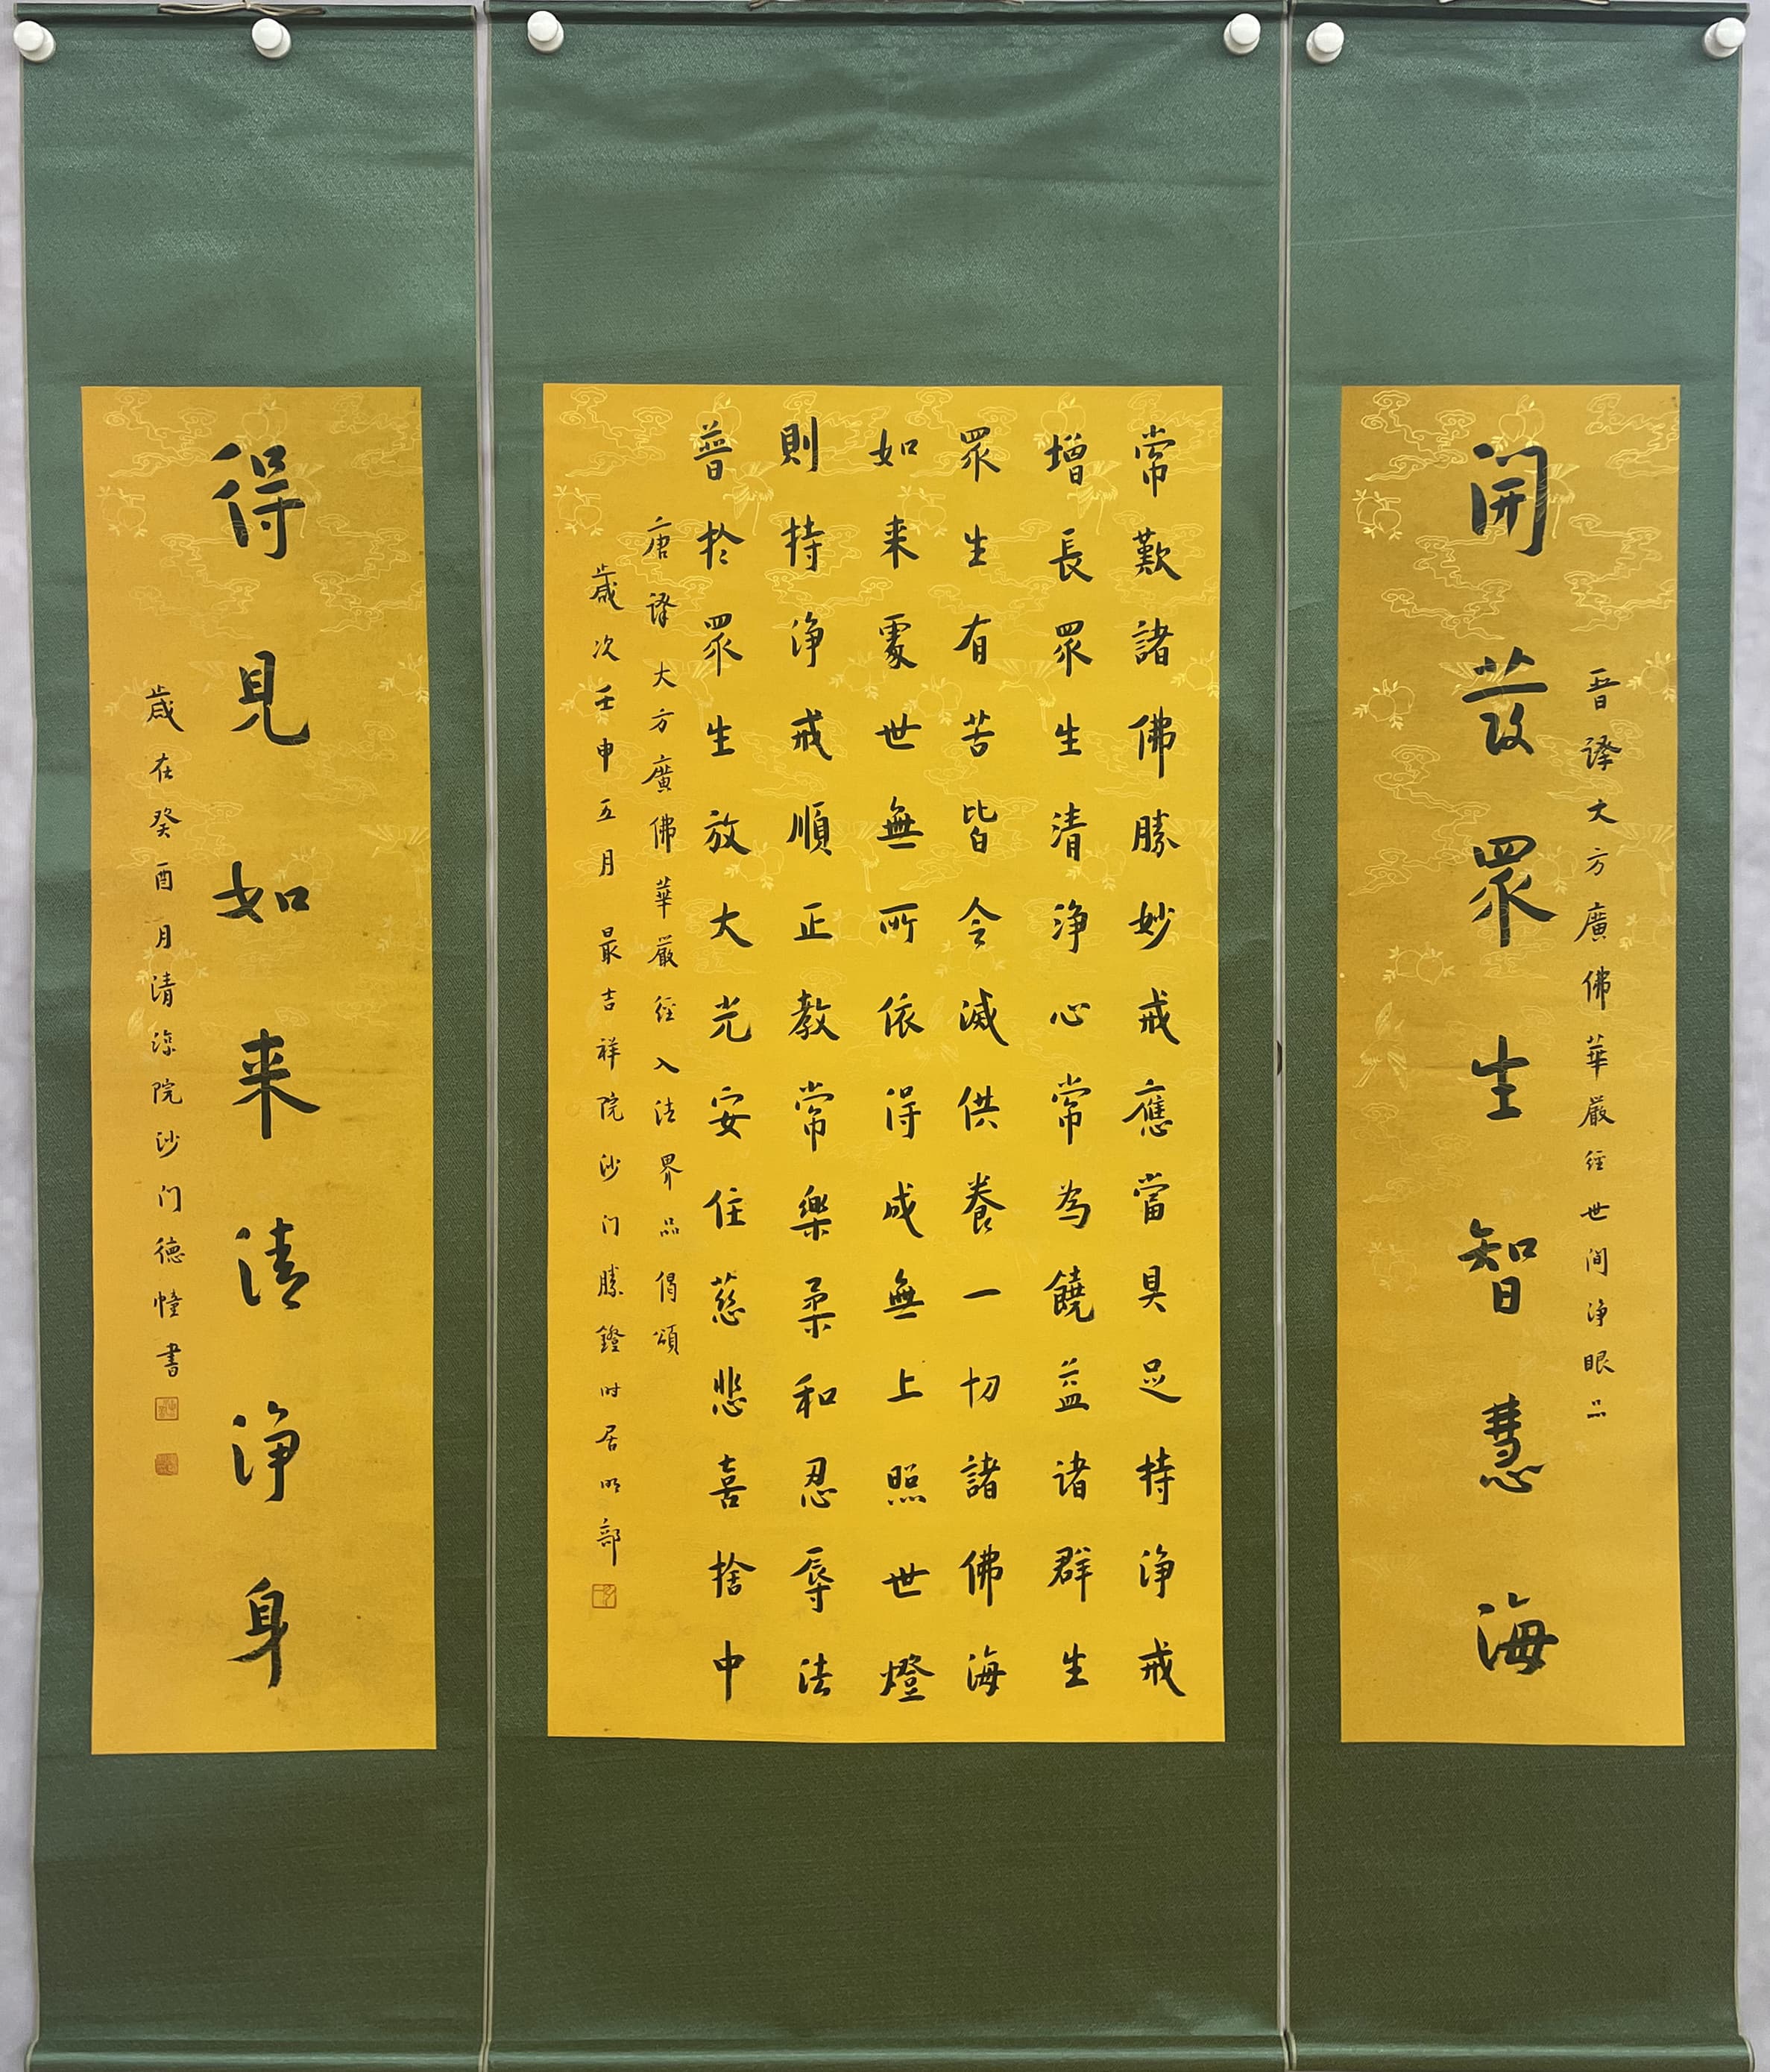 晋譯大方廣佛華嚴経世间浄眼品
開發眾生智慧海
常歎諸佛勝妙戒應當具足持浄戒
增長眾生清浄心常為饒益诸群生
眾生有苦皆令滅供養一切諸佛海
如来處世無所依得成無上照世燈
則持浄戒順正教常樂柔和忍辱法
普於眾生放大光安住慈悲喜捨中
唐譯大方廣佛華嚴経入法界品偈頌
歲次壬申五月 最吉祥院沙门勝鐙时居
得見如来清浄身
歲在癸酉月清涼院沙门德幢書